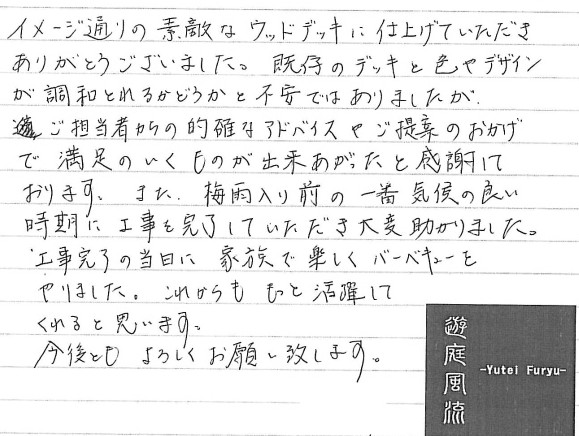 イメージ通りの素敵なウッドデッキに仕上げていただき
ありがとうございました。既存のデッキと色やデザイン
が調和とれるかどうかと不安ではありましたが、
ご担当者からの的確なアドバイスやご提案のおかげ
で満足のいくものが出来あがったと感謝して
おります。また、梅雨入り前の一番気候の良い
時期に工事を完了していただき大変助かりました。
工事完了の当日に家族で楽しくバーベキューを
やりました。これからももっと活躍して
くれると思います。
今後とも よろしくお願い致します。
遊庭風流
-Yutei Furyu-